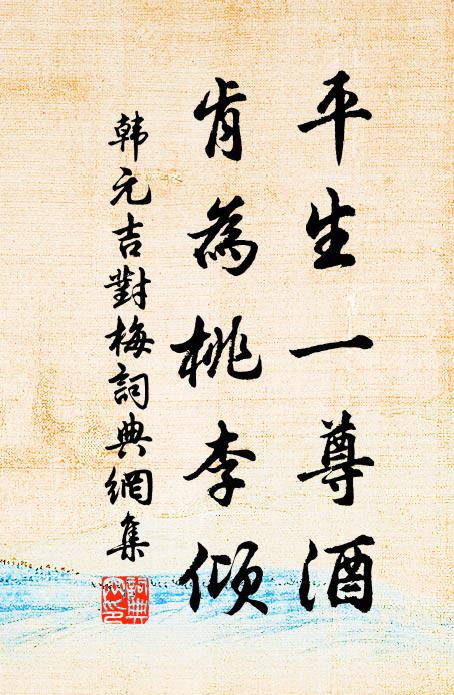 平生一尊酒
肯為桃李傾
韩元吉對梅詞典網集